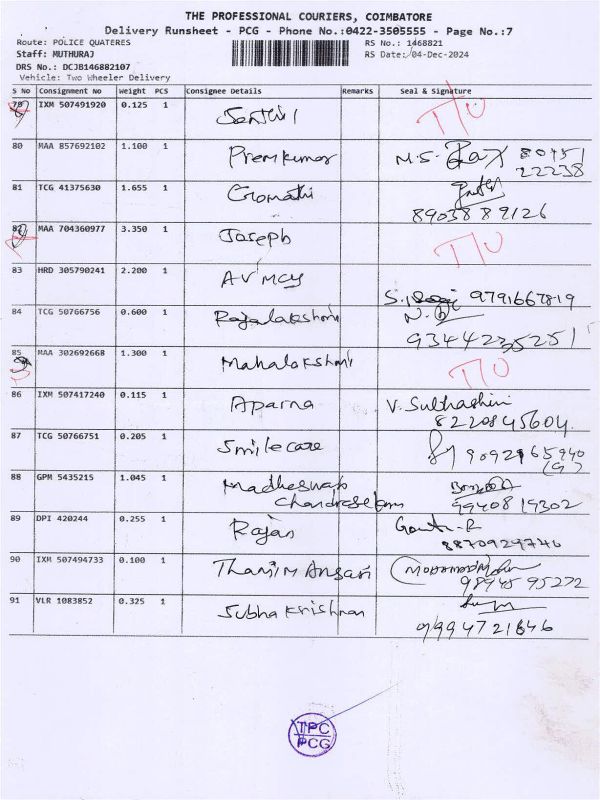 THE PROFESSIONAL COURIERS, COIMBATORE
Delivery Runsheet - PCG - Phone No.:0422-3505555 - Page No.:7
Route: POLICE QUATERES
RS No.: 1468821
Staff: MUTHURAJ
RS Date: 04-Dec-2024
DRS No.: DCJB146882107
Vehicle: Two Wheeler Delivery
S No Consignment No Weight PCS Consignee Details Remarks Seal & Signature
79 IXM 507491920 0.125 1 Senthil T/O
80 MAA 857692102 1.100 1 Premkumar M.S. 80451
22238
81 TCG 41375630 1.655 1 Gomathi
8903889126
82 MAA 704360977 3.350 1 Joseph T/O
83 HRD 305790241 2.200 1 AV MCY
S. 9791667819
84 TCG 50766756 0.600 1 Rajalakshmi N.
9344235251
85 MAA 302692668 1.300 1 Mahalakshmi T/O
86 IXM 507417240 0.115 1 Aparna V. Subhashini
8220845604
87 TCG 50766751 0.205 1 Smile care 9092165940
88 GPM 5435215 1.045 1 Madheswab
Chandrasekam 9940819302
89 DPI 420244 0.255 1 Rajan Gouth-R
8870929746
90 IXM 507494733 0.100 1 Thamim Ansari
9894595272
91 VLR 1083852 0.325 1 Subha Krishnan
9994721646
TPC
PCG